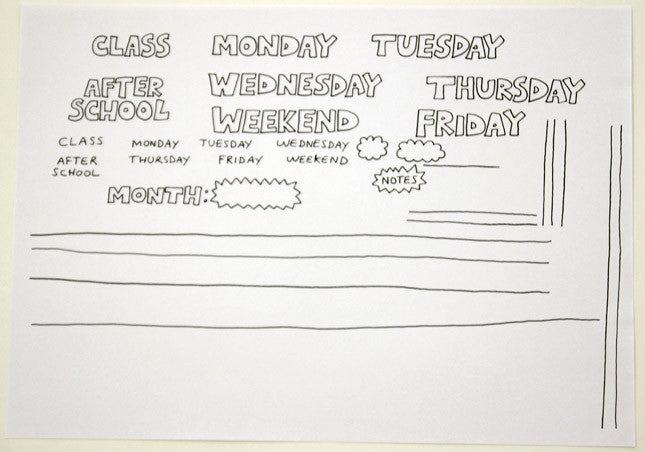 CLASS MONDAY TUESDAY
AFTER SCHOOL WEDNESDAY THURSDAY
WEEKEND FRIDAY
CLASS MONDAY TUESDAY WEDNESDAY
AFTER SCHOOL THURSDAY FRIDAY WEEKEND
NOTES
MONTH: